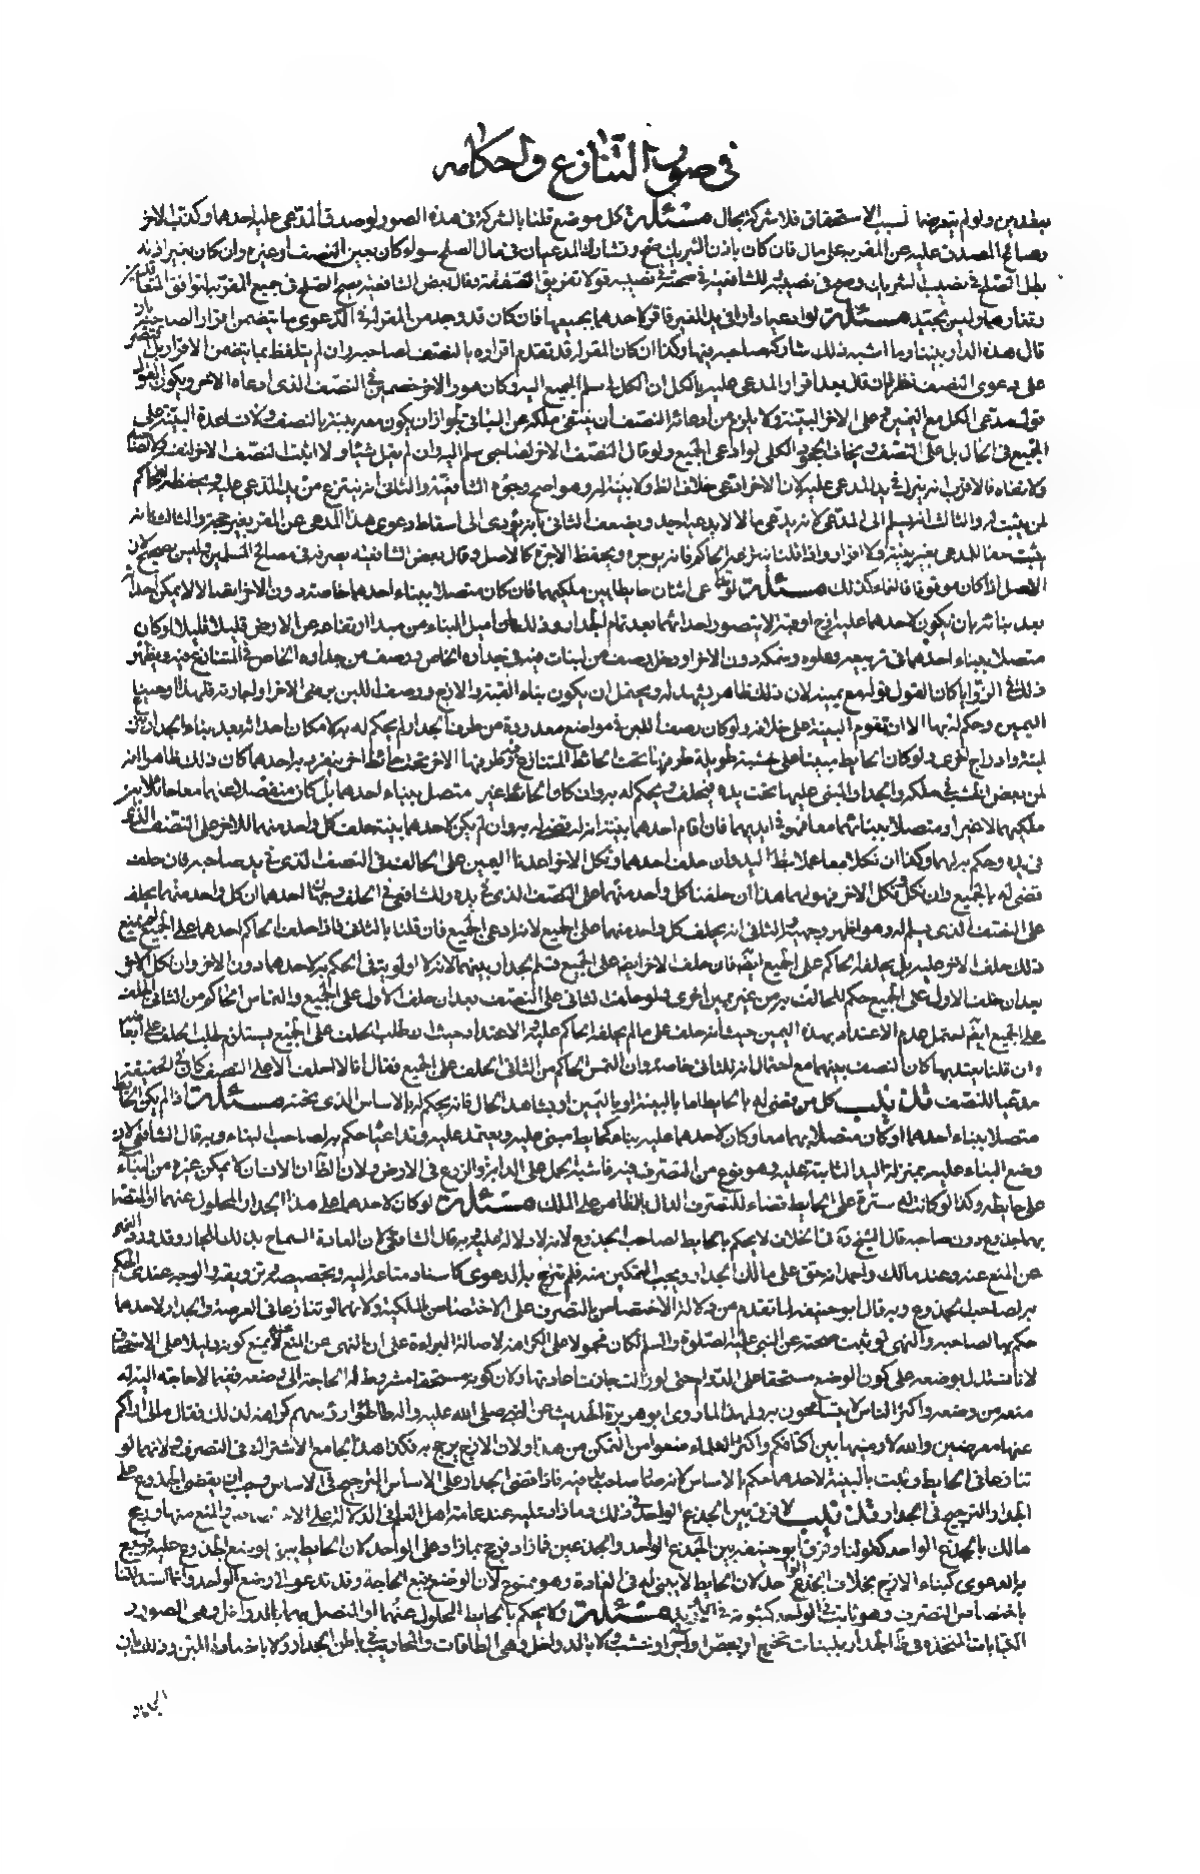 في صور التنازع واحكامه
ولو لم يتعرضا لسبب الاستحقاق فلا شركة بحال مسئلة كل موضع قلنا بالشركة في هذه الصور لو صدق المدعى عليه احدهما وكذب الاخر
وصالح المصدق عليه عن المقر به على مال فان كان باذن الشريك صح وتشارك المدعيان في مال الصلح سواء كان بعين النصف او غيره وان كان بغير اذنه
بطل الصلح في نصيب الشريك وصح في نصيبه للشافعية في صحته في نصيبه قولا تفريق الصفقة وقال بعض الشافعية يصح الصلح في جميع المقر به لتوافق
وليس بجيد مسئلة لو ادعيا دارا في يد الغير فاقر لاحدهما بجميعها فان كان قد وجد من المقر له في الدعوى ما يتضمن اقرار الصاحبه
قال هذه الدار بيننا وما اشبه ذلك شاركه صاحبه فيها وكذا ان كان المقر له قد تقدم اقراره بالنصف لصاحبه وان لم يتلفظ بما يتضمن الاقرار بل
على دعوى النصف نظر فان قال بعد اقرار المدعى عليه بالكل ان الكل لي سلم الجميع اليه وكان هو والاخر خصمين في النصف الذي ادعاه الاخر ويكون القول
قول مدعى الكل مع اليمين على الاخر البينة ولا يلزم من ادعائه النصف ان ينتفي ملكه عن الباقي لجواز ان يكون معه بينة بالنصف
الجميع في الحال بل على النصف ويخاف الجحود الكلي لو ادعى الجميع ولو قال النصف الاخر لصاحبي سلم اليه وان لم يقل شيئا ولا اثبت النصف الاخر لنفسه
فالاقرب انه يترك في يد المدعى عليه لان الاخر ادعى خلاف الظاهر ولا بينة له وهو اصح وجوه الشافعية والثاني انه ينتزع من يد المدعى عليه ويحفظه الحاكم
لمن يثبت له والثالث انه يسلم الى المدعي لانه يدعي مالا لا يدعيه احد ويضعف الثاني بانه يؤدي الى اسقاط دعوى هذا المدعي عن المقر بغير حجة والثالث بانه
يثبت حق المدعي بغير بينة ولا اقرار واذا قلنا ينتزعه الحاكم فانه يوجره ويحفظ الاجرة كالاصل وقال بعض الشافعية يصرفه في مصالح المسلمين وليس بصحيح لان
الاصل اذا كان موقوفا فالنماء كذلك مسئلة لو ادعى اثنان حائطا بين ملكيهما فان كان متصلا ببناء احدهما خاصة دون الاخر اتصالا لا يمكن احداثه
بعد بنائه بان يكون لاحدهما عليه ازج او قبة لا يتصور احداثهما بعد تمام الجدار وذلك بان اميل البناء من مبدا ارتفاعه عن الارض قليلا قليلا او كان
متصلا ببناء احدهما في تربيعه وعلوه وسمكه دون الاخر او دخل رصف من لبنات منه في جداره الخاص ورصف من جداره الخاص في المتنازع فيه ويظهر
ذلك في الزوايا كان القول قوله مع يمينه لان ذلك ظاهر يشهد له ويحتمل ان يكون بناء القبة والازج ورصف اللبن برضى الاخر او اجارته فلهذا اوجبنا
اليمين وحكم له بها الا ان تقوم البينة على خلافه ولو كان رصف اللبن في مواضع معدودة من طرف الجدار لم يحكم له به لامكان احداثه بعد بناء الجدار بنزع
لبنة وادراج اخرى ولو كان الحايط مبنيا على خشبة طويلة طرفها تحت الحائط المتنازع فيه وطرفها الاخر تحت حائط اخر ينفرد به احدهما كان ذلك ظاهرا انه
لمن بعض الخشبة في ملكه والجدار المبنى عليها تحت يده فيحلف ويحكم له به وان كان الحائط غير متصل ببناء احدهما بل كان منفصلا عنهما معا حائلا بين
ملكيهما لا غير او متصلا ببنائهما معا فهو في ايديهما فان اقام احدهما بينة انه له قضي له به وان لم يكن لاحدهما بينة حلف كل واحد منهما للاخر على النصف الذي
في يده وحكم به لهما وكذا ان نكلا معا عملا بظاهر اليد وان حلف احدهما ونكل الاخر اعدنا اليمين على الحالف في النصف الذي في يد صاحبه فان حلف
قضي له بالجميع وان نكل ونكل الاخر فهو لهما هذا ان حلفنا كل واحد منهما على النصف الذي في يده وللشافعي في الحلف وجهان احدهما ان كل واحد منهما يحلف
على النصف الذي يسلم له وهو اظهر وجهيه الثاني انه يحلف كل واحد منهما على الجميع لانه ادعى الجميع فان قلنا بالثاني فاذا حلف الحاكم احدهما على الجميع لم يمنع
ذلك حلف الاخر عليه بل يحلفه الحاكم على الجميع ايضا فان حلف الاخر ايضا على الجميع قسم الجدار بينهما لانه لا اولوية في الحكم به لاحدهما دون الاخر وان نكل الاخر
بعد ان حلف الاول على الجميع حكم للحالف به من غير يمين اخرى ولو حلف الثاني على النصف بعد ان حلف الاول على الجميع والتماس الحاكم من الثاني الحلف
على الجميع ايضا احتمل عدم الاعتداد بهذه اليمين حيث انه حلف على ما لم يحلفه الحاكم عليه والاعتداد حيث ان طلب الحلف على الجميع يستلزم طلب الحلف على ابعاضه
وان قلنا يعتد بها كان النصف بينهما مع احتمال انه للثاني خاصة وان التمس الحاكم من الثاني الحلف على الجميع فقال انا لا احلف الا على النصف كان في الحقيقة
مدعيا للنصف تذنيب كل من قضي له بالحايط اما بالبينة او باليمين او بشاهد الحال فانه يحكم له بالاساس الذي تحته مسئلة اذا لم يكن الحائط
متصلا ببناء احدهما او كان متصلا بهما معا وكان لاحدهما عليه بناء كحايط مبني عليه ويعتمد عليه وتداعيا حكم به لصاحب البناء وبه قال الشافعي لان
وضع البناء عليه بمنزلة اليد الثابتة عليه وهو نوع من التصرف فيه فاشبه الحمل على الدابة والزرع في الارض ولان الظاهر ان الانسان لا يمكن غيره من البناء
على حايطه وكذا لو كانت له سترة على الحايط قضاء للتصرف الدال بالظاهر على الملك مسئلة لو كان لاحدهما على هذا الجدار المحلول عنهما او المتصل
بهما جذوع دون صاحبه قال الشيخ ره في الخلاف لا يحكم بالحايط لصاحب الجذوع لانه لا دلالة عليه وبه قال الشافعي لان العادة السماح بذلك للجار وقد ورد النهي
عن المنع عنه وعند مالك واحمد انه حق على مالك الجدار ويجب التمكين منه فلم ترجح به الدعوى كاسناد متاعه اليه وتجصيصه وتزويقه والوجه عندي الحكم
به لصاحب الجذوع وبه قال ابو حنيفة لما تقدم من دلالة الاختصاص بالتصرف على الاختصاص بالملكية ولانهما لو تنازعا في العرصة والجدار لاحدهما
حكم بها لصاحبه والنهي لو ثبت صحته عن النبي عليه الصلوة والسلم لكان محمولا على الكراهة لاصالة البراءة على ان النهي عن المنع لا يمنع كونه دليلا على الاستحقاق
لانا نستدل بوضعه على كون الوضع مستحقا على الدوام حتى لو زالت جازت اعادتها وكان كونه مستحقا مشروط له الحاجة الى وضعه ففيما لا حاجة اليه له
منعه من وضعه واكثر الناس لا يتسامحون به ولهذا لما روى ابو هريرة الحديث عن النبي صلى الله عليه واله طأطئوا رؤسهم كراهة لذلك فقال مالي اراكم
عنها معرضين والله لارمينها بين اكتافكم واكثر العلماء منعوا من التمكن من هذا ولان الازج يرجح به فكذا هذا بجامع الاشتراك في التصرف ولانهما لو
تنازعا في الحايط وثبت بالبينة لاحدهما حكم بالاساس لانه صار صاحب يد فيه فاذا اقتضى الجدار على الاساس الترجيح في الاساس وجب ان يقتضي الجذوع على
الجدار والترجيح في الجدار تذنيب لا فرق بين الجذع الواحد في ذلك وما زاد عليه عند عامة اهل العلم في الدلالة على
مالك بالجذع الواحد كقولنا وفرق ابو حنيفة بين الجذع الواحد والجذعين فما زاد فرجح بما زاد على الواحد لان الحايط يبنى لوضع الجذوع عليه فرجح
به الدعوى كبناء الازج بخلاف الجذع الواحد لان الحايط لا يبنى له في العادة وهو ممنوع لان الوضع يتبع الحاجة وقد تدعو الى وضع الواحد وانما استدللنا
باختصاص التصرف وهو ثابت في الواحد كثبوته في الازيد مسئلة ولا يحكم بالحايط المحلول عنهما او المتصل بهما بالدواخل وهي الصور و
الكتابات المتخذة في الجدار بلبنات تخرج او بجص او آجر او خشب ولا بالدواخل وهي الطاقات والمحاريب في باطن الجدار ولا بانصاف اللبن وذلك بان
الجدار